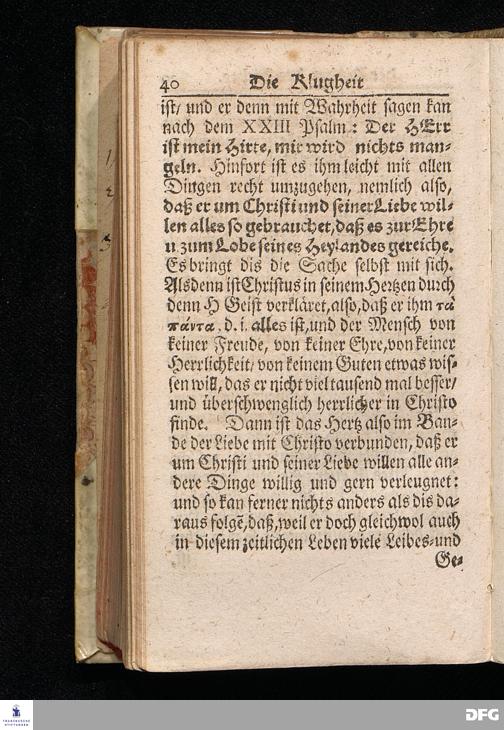 40 Die Klugheit
ist/ und er denn mit Wahrheit sagen kan
nach dem XXIII Psalm: Der HErr
ist mein Hirte, mir wird nichts man-
geln. Hinfort ist es ihm leicht mit allen
Dingen recht umzugehen, nemlich also,
daß er um Christi und seiner Liebe wil-
len alles so gebrauchet, daß es zur Ehre
u zum Lobe seines Heylandes gereiche.
Es bringt dis die Sache selbst mit sich.
Alsdenn ist Christus in seinem Hertzen durch
denn H Geist verkläret, also, daß er ihm τὰ
πάντα, d. i. alles ist, und der Mensch von
keiner Freude, von keiner Ehre, von keiner
Herrlichkeit/ von keinem Guten etwas wis-
sen will, das er nicht viel tausend mal besser/
und überschwenglich herrlicher in Christo
finde. Dann ist das Hertz also im Ban-
de der Liebe mit Christo verbunden, daß er
um Christi und seiner Liebe willen alle an-
dere Dinge willig und gern verleugnet:
und so kan ferner nichts anders als dis da-
raus folgē, daß, weil er doch gleichwol auch
in diesem zeitlichen Leben viele Leibes- und
Ge-
FRANCKESCHE
STIFTUNGEN
DFG